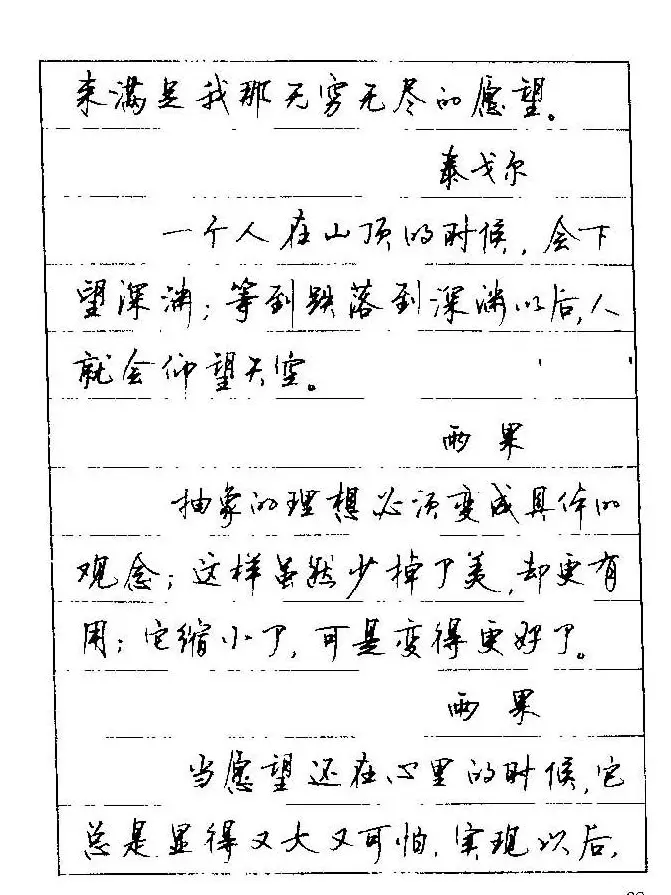 来满足我那无穷无尽的愿望。
泰戈尔
一个人在山顶的时候，会下
望深渊；等到跌落到深渊以后，人
就会仰望天空。
雨果
抽象的理想必须变成具体的
观念；这样虽然少掉了美，却更有
用；它缩小了，可是变得更好了。
雨果
当愿望还在心里的时候，它
总是显得又大又可怕，实现以后，